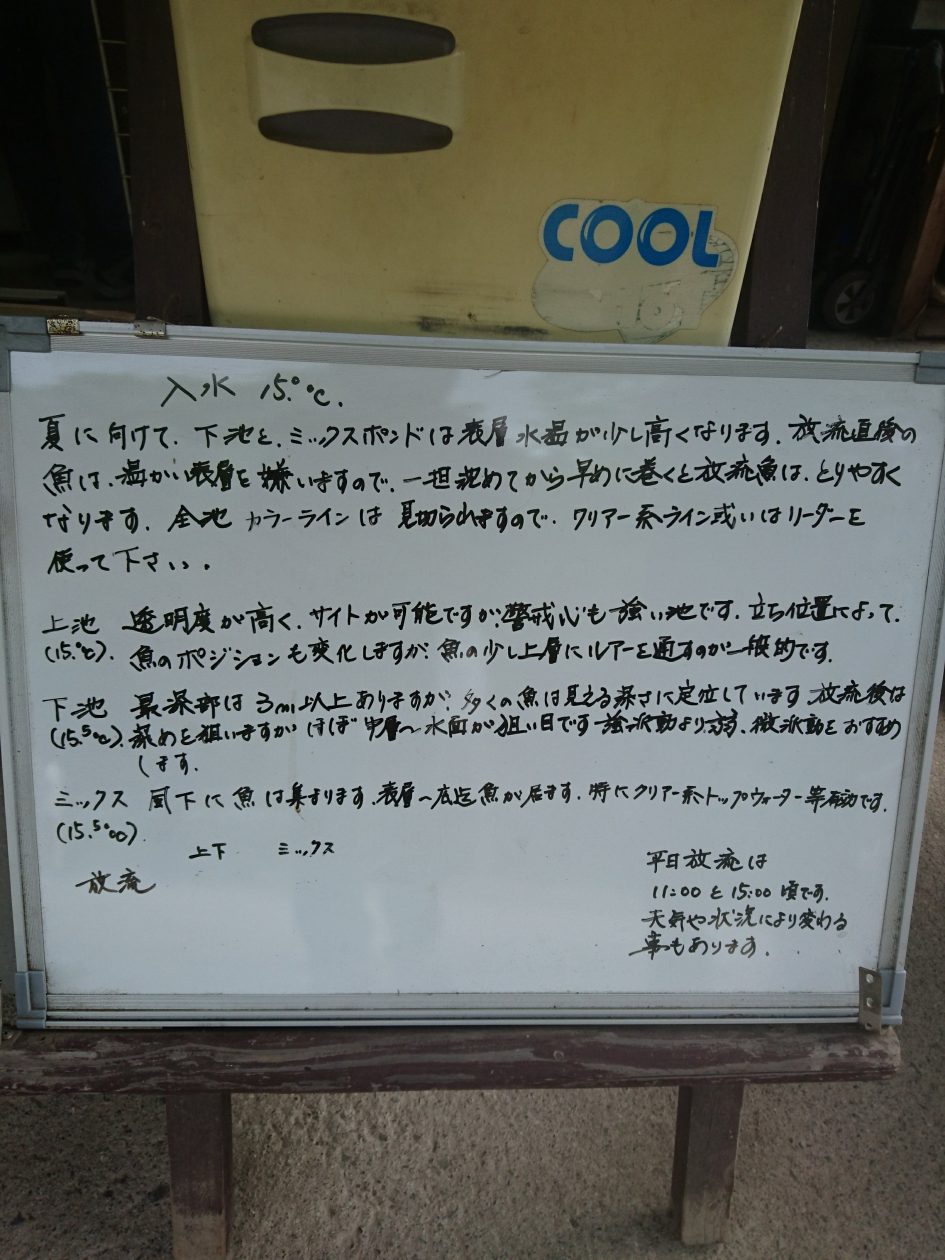 COOL
入水 15.0℃.
夏に向けて、下池と、ミックスポンドは表層水温が少し高くなります。放流直後の
魚は、温かい表層を嫌いますので、一担沈めてから早めに巻くと放流魚は、とりやすく
なります。全池 カラーラインは 見切られますので、クリアー系ライン或いはリーダーを
使って下さい。
上池 透明度が高く、サイトが可能ですが、警戒心も強い池です。立ち位置によって、
(15.0℃). 魚のポジションも変化しますが、魚の少し上層にルアーを通すのが一般的です。
下池 最深部は3m以上ありますが、多くの魚は見える深さに定位しています。放流後は
(15.5℃). 深めを狙いますが ほぼ 中層〜水面が狙い目です 強波動より、弱、微波動をおすすめ
します。
ミックス 風下に魚は集まります。表層〜底迄魚が居ます。特にクリアー系トップウォーター等有効です。
(15.5℃).
上下 ミックス
放流
平日放流は
11:00と15:00頃です。
天気や状況により変わる
事もあります。